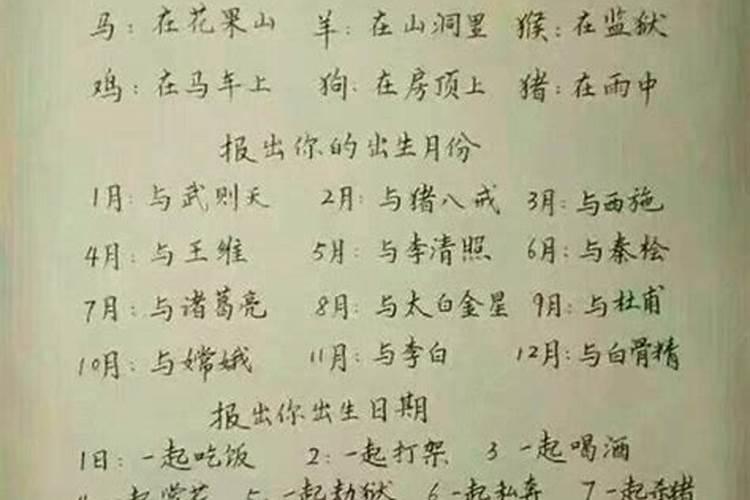 马：在花果山 羊：在山洞里 猴：在监狱
鸡：在马车上 狗：在房顶上 猪：在雨中
报出你的出生月份
1月：与武则天 2月：与猪八戒 3月：与西施
4月：与王维 5月：与李清照 6月：与秦桧
7月：与诸葛亮 8月：与太白金星 9月：与杜甫
10月：与嫦娥 11月：与李白 12月：与白骨精
报出你出生日期
1日：一起吃饭 2：一起打架 3 一起喝酒
4 一起赏花 5 一起劫狱 6 一起私奔 7 一起杀猪